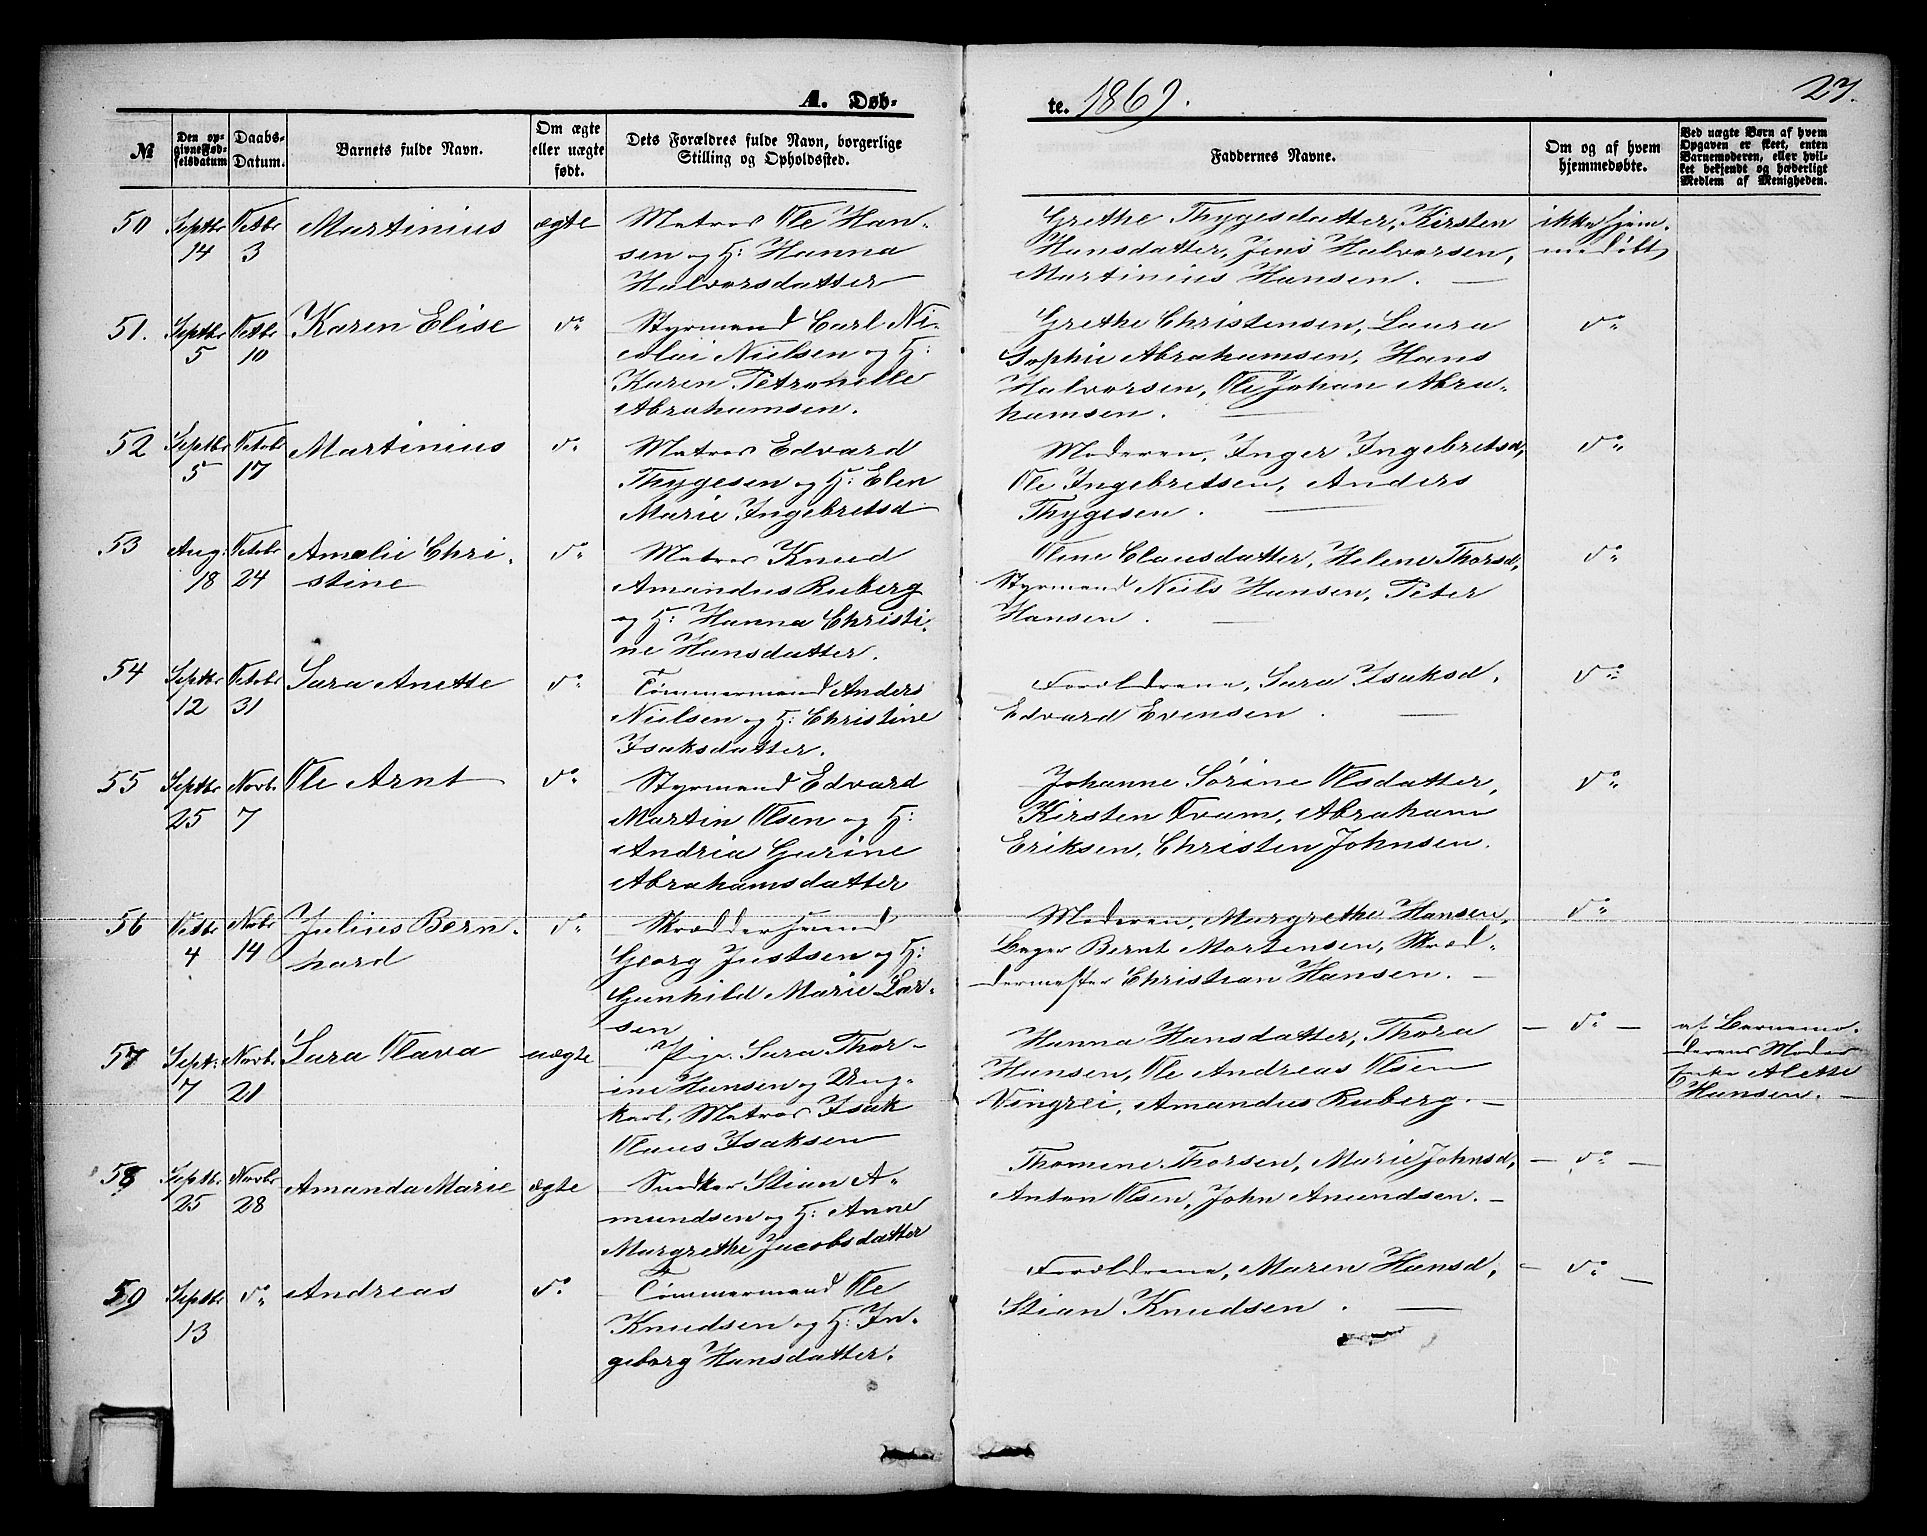 A. Døb-
te. 1869.
27.
№
Den op-
givne Fød-
selsdatum
Daabs-
Datum.
Barnets fulde Navn.
Om ægte
eller uægte
født.
Dets Forældres fulde Navn, borgerlige
Stilling og Opholdssted.
Faddernes Navne.
Om og af hvem
hjemmedøbte.
Ved uægte Børn af hvem
Opgaven er skeet, enten
Barnemoderen, eller hvil-
ket bekjendt og hæderligt
Medlem af Menigheden.
50
Septbr
14
Octbr
3
Martinius
ægte
Matros Ole Han-
sen og H: Hanna
Halvorsdatter
Grethe Thygesdatter, Kirsten
Hansdatter, Jens Halvorsen,
Martinius Hansen.
ikke hjem-
medøbt
51.
Septbr
5
Octbr
10
Karen Elise
do
Styrmand Carl Ni-
colai Nielsen og H:
Karen Petronelle
Abrahamsen.
Grethe Christensen, Laura
Sophie Abrahamsen, Hans
Halvorsen, Ole Johan Abra-
hamsen.
do
52
Septbr
5
Octobr
17
Martinius
do
Matros Edvard
Thygesen og H: Elen
Marie Ingebretsd
Moderen, Inger Ingebretsd,
Ole Ingebretsen, Anders
Thygesen.
do
53
Aug:
18
Octobr
24
Amalie Chri-
stine
do
Matros Knud
Amandus Ruberg
og H: Hanna Christi-
ne Hansdatter.
Oline Clausdatter, Helene Thorsd,
Styrmand Niels Hansen, Peter
Hansen.
do
54
Septbr
12
Octobr
31
Sara Anette
do
Tømmermand Anders
Nielsen og H: Christine
Isaksdatter.
Forældrene, Sara Isaksd,
Edvard Evensen.
do
55
Septbr
25
Novbr
7
Ole Arnt
do
Styrmand Edvard
Martin Olsen og H:
Andrea Gurine
Abrahamsdatter
Johanne Sørine Olsdatter,
Kirsten Tvam, Abraham
Eriksen, Christen Johnsen.
do
56
Octbr
4
Nobr
14
Julius Bern-
hard
do
Skrædder Svend
Georg Justsen og H:
Gunhild Marie Lar-
sen
Moderen, Margrethe Hansen,
Bager Bernt Mortensen, Skræd-
dermester Christian Hansen.
do
57
Sept:
7
Novbr
21
Sara Olava
uægte
Pige Sara Thor-
ine Hansen og Ung-
karl, Matros Isak
Olaus Isaksen
Hanna Hansdatter, Thora
Hansen, Ole Andreas Olsen
Vingrei, Amandus Ruberg.
do
af Barnemo-
derens Moder
Enke Alette
Hansen.
58
Septbr
25
Novbr
28
Amanda Marie
ægte
Snedker Stian A-
mundsen og H: Anne
Margrethe Jacobsdatter
Thomine Thorsen, Marie Johnsd,
Anton Olsen, John Amundsen.
do
59
Septbr
13
do
Andreas
do
Tømmermand Ole
Knudsen og H: In-
geborg Hansdatter.
Forældrene, Maren Hansd,
Stian Knudsen.
do